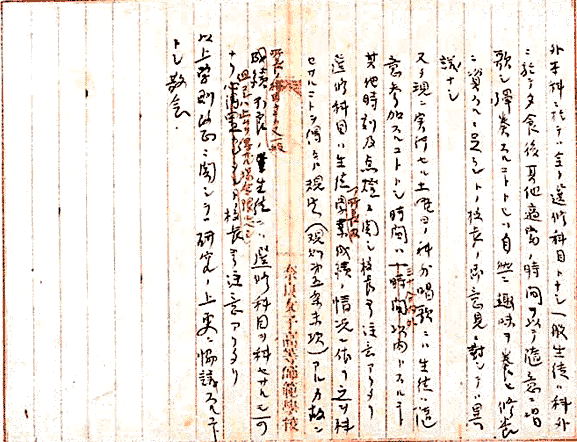 外本科ニ於テハ全ク選修科目トシ一般生徒ハ科外
ニ於テ夕食後其他適当ノ時間ヲ以テ随意ニ唱
歌シ弾奏スルコトトシ自然ニ趣味ヲ養ヒ修養
ニ資スルニ足ラントノ校長ノ御意見ニ対シテハ異
議ナシ
又タ現ニ実行セル土曜日ノ科外唱歌ニハ生徒ハ随
意参加スルコトトシ時間ハ三十分内外トスルコト
其他時刻及点燈ニ関シ校長ヨリ注意アリタリ
選修科目ハ生徒ノ学業成績ノ情況ニ依リ之ヲ科
セサルコトヲ得ル規定(規則第五条末項)アルカ故ニ
奈良女子高等師範學校
成績不良ノ生徒ニハ選修科目ヲ科セサルモ可
ナリ 校長ヨリ注意アリタリ
以上学則改正ニ関シテハ研究ノ上更ニ協議スルコ
トトシ散会.